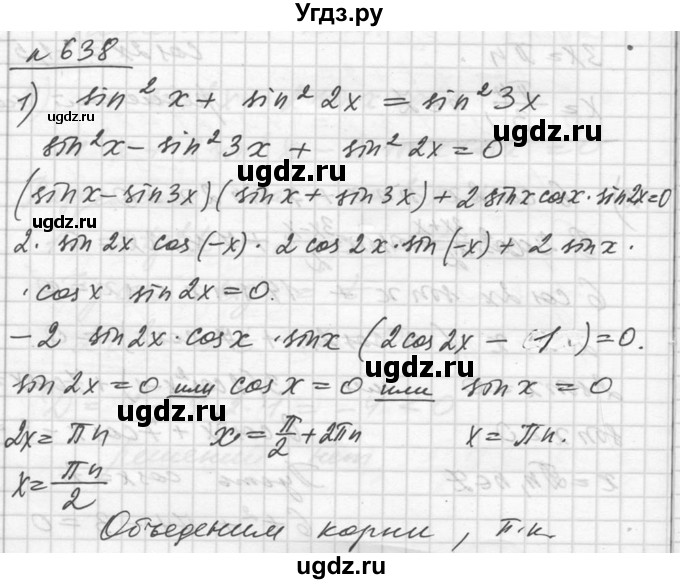 Угдз.ру
n 638
1) sin² x + sin² 2x = sin² 3x
ugdz.ru ugdz.ru
sin²x - sin² 3x + sin² 2x = 0
ugdz.ru
(sin x - sin 3x)(sin x + sin 3x) + 2 sin x cos x · sin 2x = 0
ugdz.ru
2 · sin 2x cos (-x) · 2 cos 2x · sin (-x) + 2 sin x ·
· cos x sin 2x = 0.
ugdz.ru
- 2 sin 2x · cos x · sin x (2 cos 2x - 1) = 0.
ugdz.ru
sin 2x = 0 или cos x = 0 или sin x = 0
ugdz.ru ugdz.ru
2x = πn x = π/2 + 2πn x = πn.
x = πn/2
ugdz.ru
Объеденим корни, т.к.
ugdz.ru
Угдз.ру